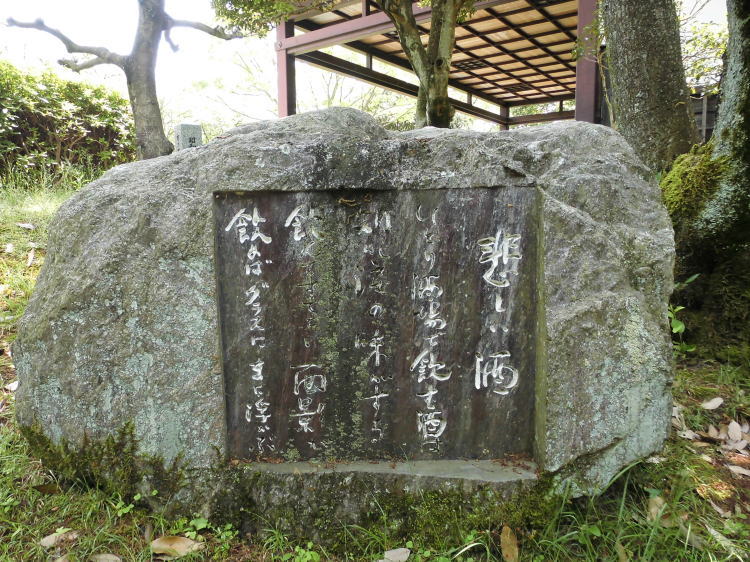 悲しい酒
ひとり酒場で飲む酒は
別れ涙の味がする
飲んですてたい面影が
飲めばグラスにまた浮かぶ